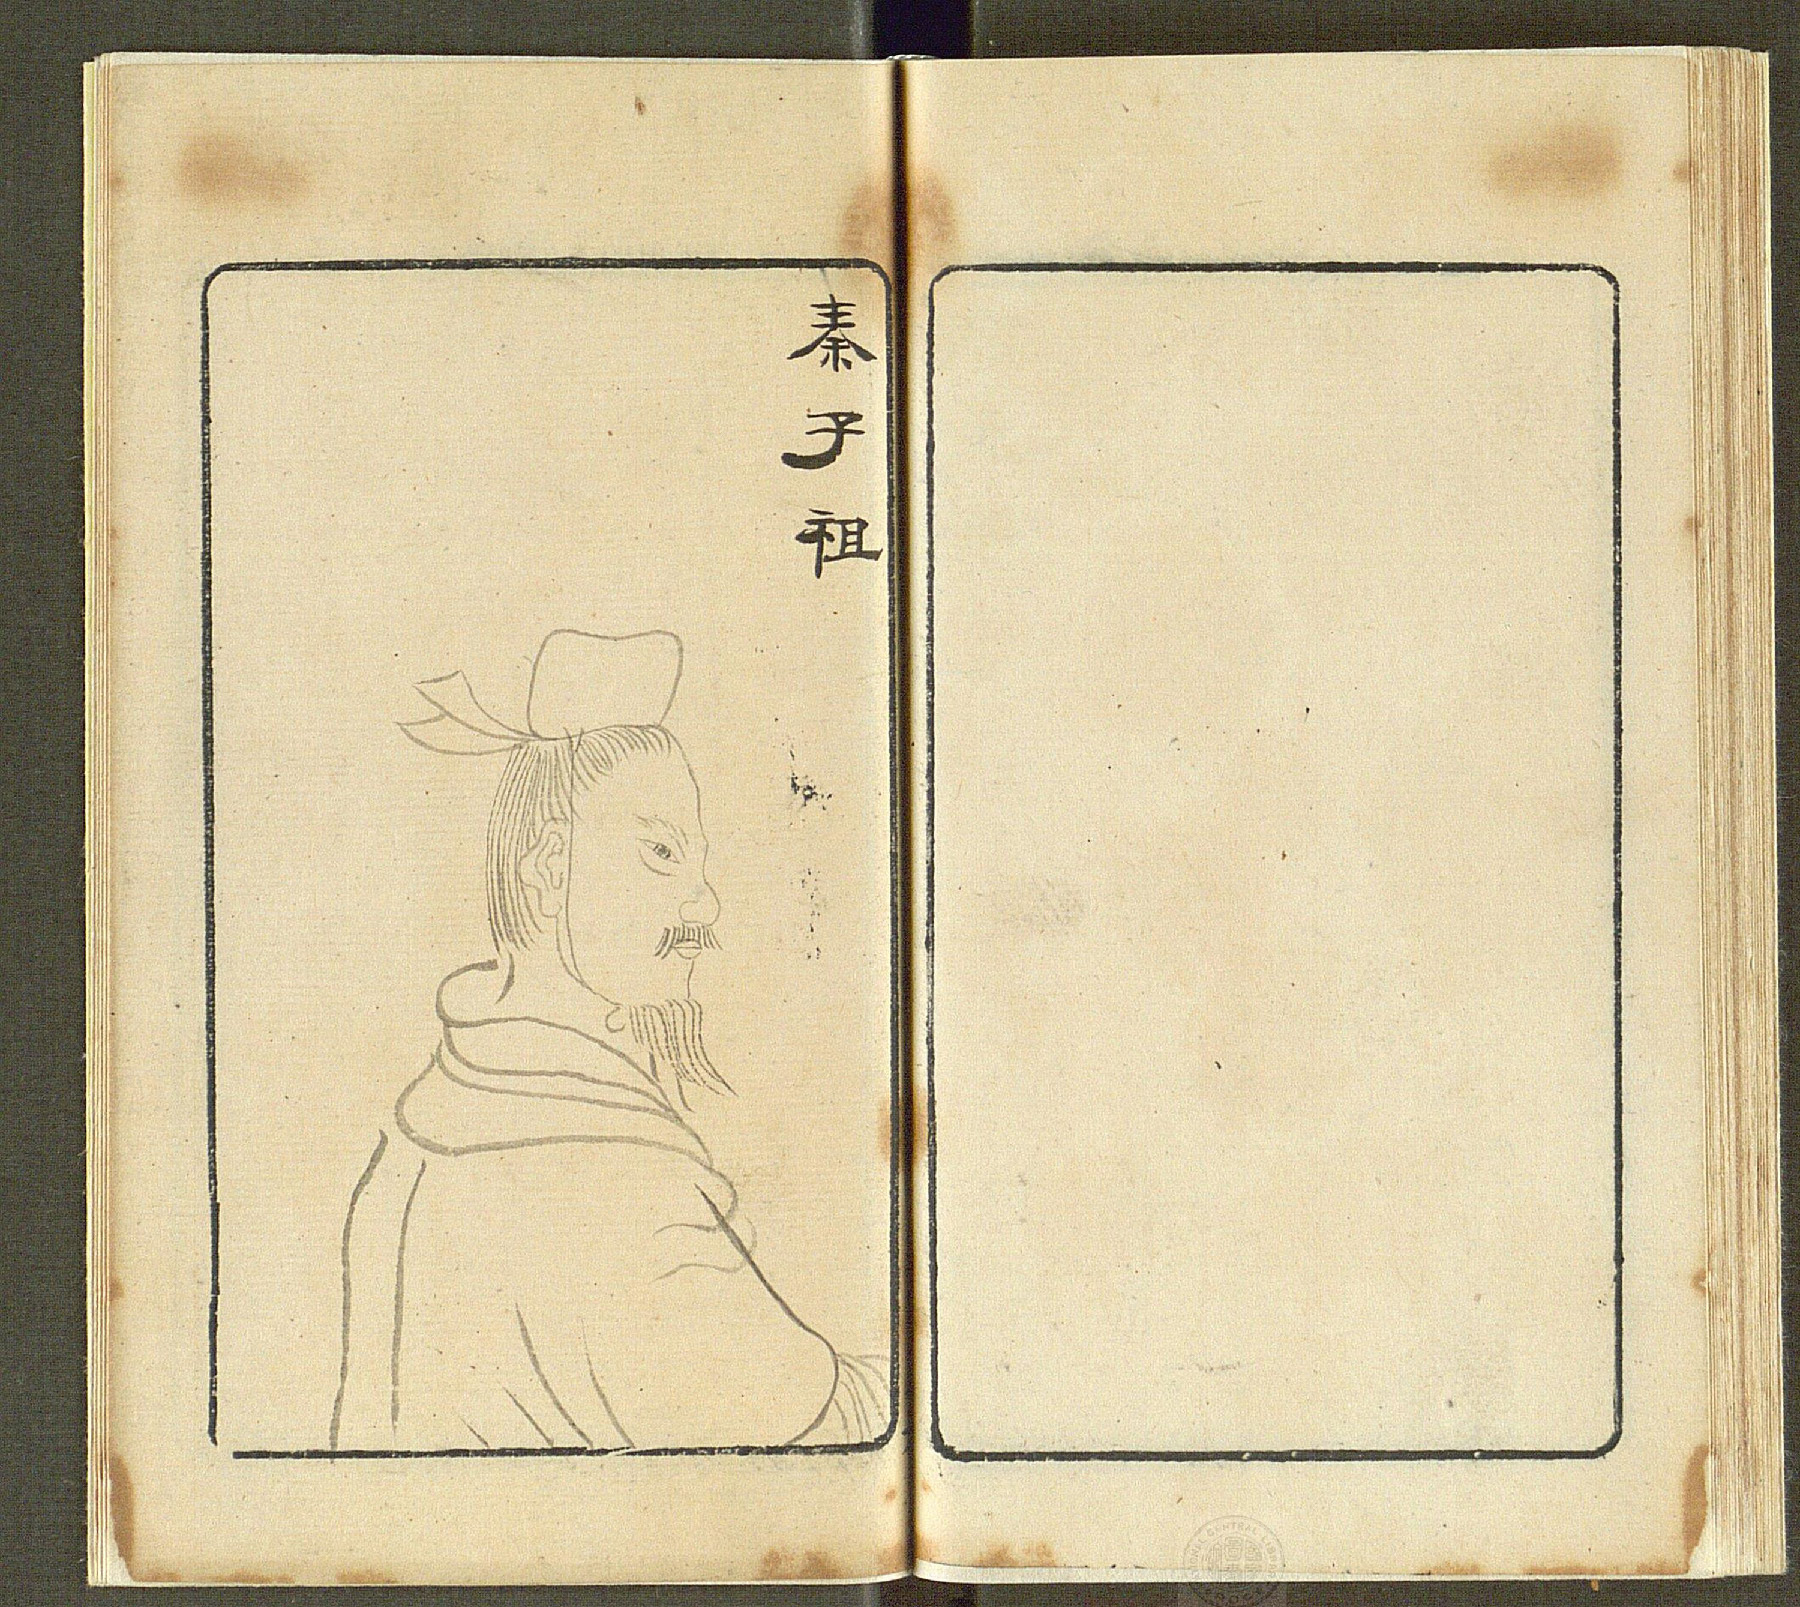 秦子祖